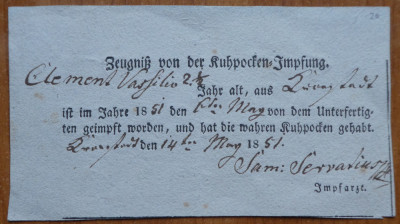 Zeugniß von der Kuhpocken-Impfung.
Clement Vassilio 2½
Jahr alt, aus Kronstadt
ist im Jahre 1851 den May von dem Unterfertig-
ten geimpft worden, und hat die wahren Kuhpocken gehabt.
Kronstadt den 14ten May 1851.
Sam: Servatius
Impfarzt.